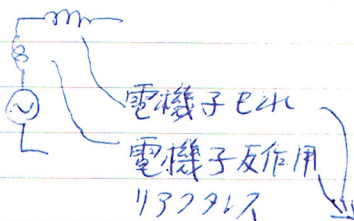 電機子もれ
電機子反作用
リアクタンス